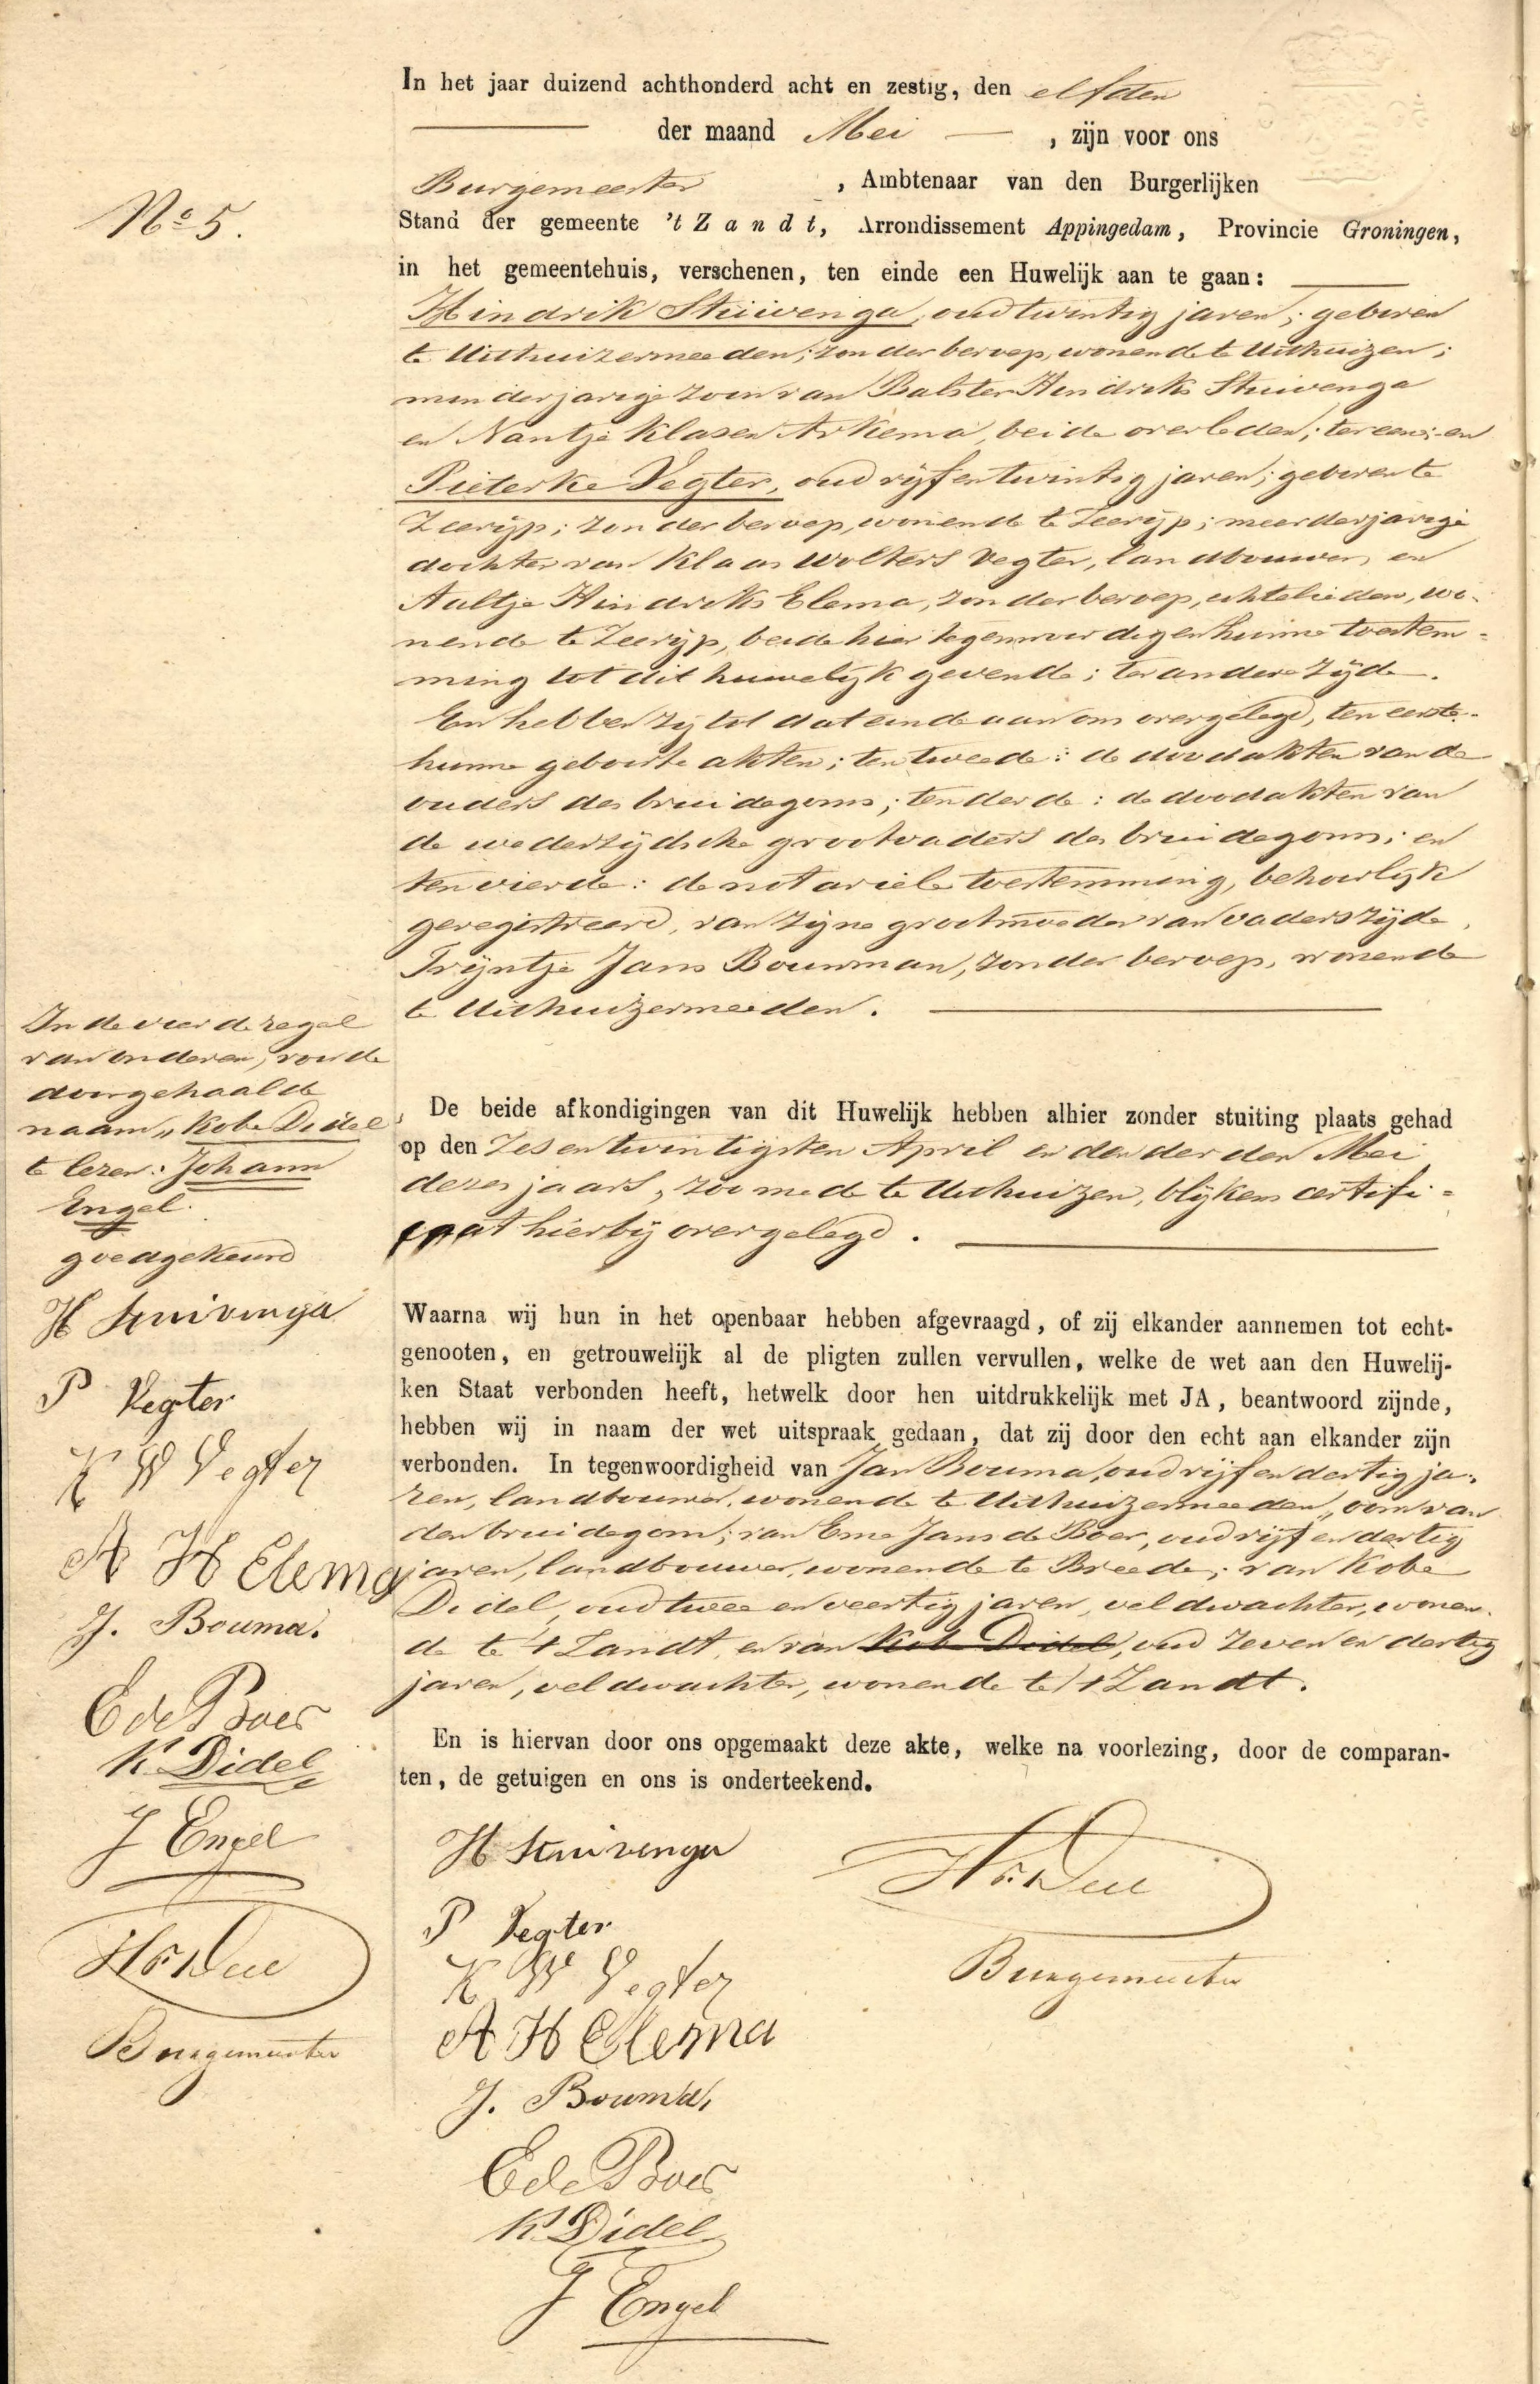 In het jaar duizend achthonderd acht en zestig, den elfden
der maand Mei, zijn voor ons
Burgemeester, Ambtenaar van den Burgerlijken
Stand der gemeente 't Zandt, Arrondissement Appingedam, Provincie Groningen,
in het gemeentehuis, verschenen, ten einde een Huwelijk aan te gaan:
No 5.
Hindrik Stuivenga, oud twintig jaren; geboren
te Uithuizermeeden; zonder beroep, wonende te Uithuizen;
minderjarige zoon van Balster Hindriks Stuivenga
en Nantje Klasen Arkema, beide overleden; ter eene; en
Pieterke Vegter, oud vijf en twintig jaren; geboren te
Zeerijp; zonder beroep, wonende te Zeerijp; meerderjarige
dochter van Klaas Wolters Vegter, landbouwer, en
Aaltje Hindriks Elema, zonder beroep, echtelieden, wo-
nende te Zeerijp, beide hier tegenwoordig en hunne toestem-
ming tot dit huwelijk gevende; ter andere zijde.
En hebben zij tot dat einde aan ons overgelegd, ten eerste:
hunne geboorte akten; ten tweede: de doodakten van de
ouders des bruidegoms; ten derde: de doodakten van
de wederzijdsche grootvaders des bruidegoms; en
ten vierde: de notariele toestemming, behoorlijk
geregistreerd, van zijne grootmoeder van vaderszijde,
Trijntje Jans Bouwman, zonder beroep, wonende
te Uithuizermeeden.
De beide afkondigingen van dit Huwelijk hebben alhier zonder stuiting plaats gehad
op den zes en twintigsten April en den derden Mei
dezes jaars, zoo mede te Uithuizen, blijkens certifi-
caat hierbij overgelegd.
Waarna wij hun in het openbaar hebben afgevraagd, of zij elkander aannemen tot echt-
genooten, en getrouwelijk al de pligten zullen vervullen, welke de wet aan den Huwelij-
ken Staat verbonden heeft, hetwelk door hen uitdrukkelijk met JA, beantwoord zijnde,
hebben wij in naam der wet uitspraak gedaan, dat zij door den echt aan elkander zijn
verbonden. In tegenwoordigheid van Jan Bouma, oud vijf en dertig ja-
ren, landbouwer, wonende te Uithuizermeeden, oom van
den bruidegom; van Eme Jans de Boer, oud vijf en dertig
jaren, landbouwer, wonende te Breede; van Kobe
Didel, oud twee en veertig jaren, veldwachter, wonen-
de te 't Zandt, en van Kobe Didel, oud zeven en dertig
jaren, veldwachter, wonende te 't Zandt.
En is hiervan door ons opgemaakt deze akte, welke na voorlezing, door de comparan-
ten, de getuigen en ons is onderteekend.
H Stuivenga
P Vegter
K W Vegter
A H Elema
J. Bouma,
E de Boer
K. Didel
J Engel
Burgemeester
In de vierde regel
van onderen, voor de
doorgehaalde
naam „Kobe Didel
te lezen: Johann
Engel.
goedgekeurd
H Stuivenga
P Vegter
K W Vegter
A H Elema
J. Bouma.
E de Boer
K. Didel
J Engel
Burgemeester